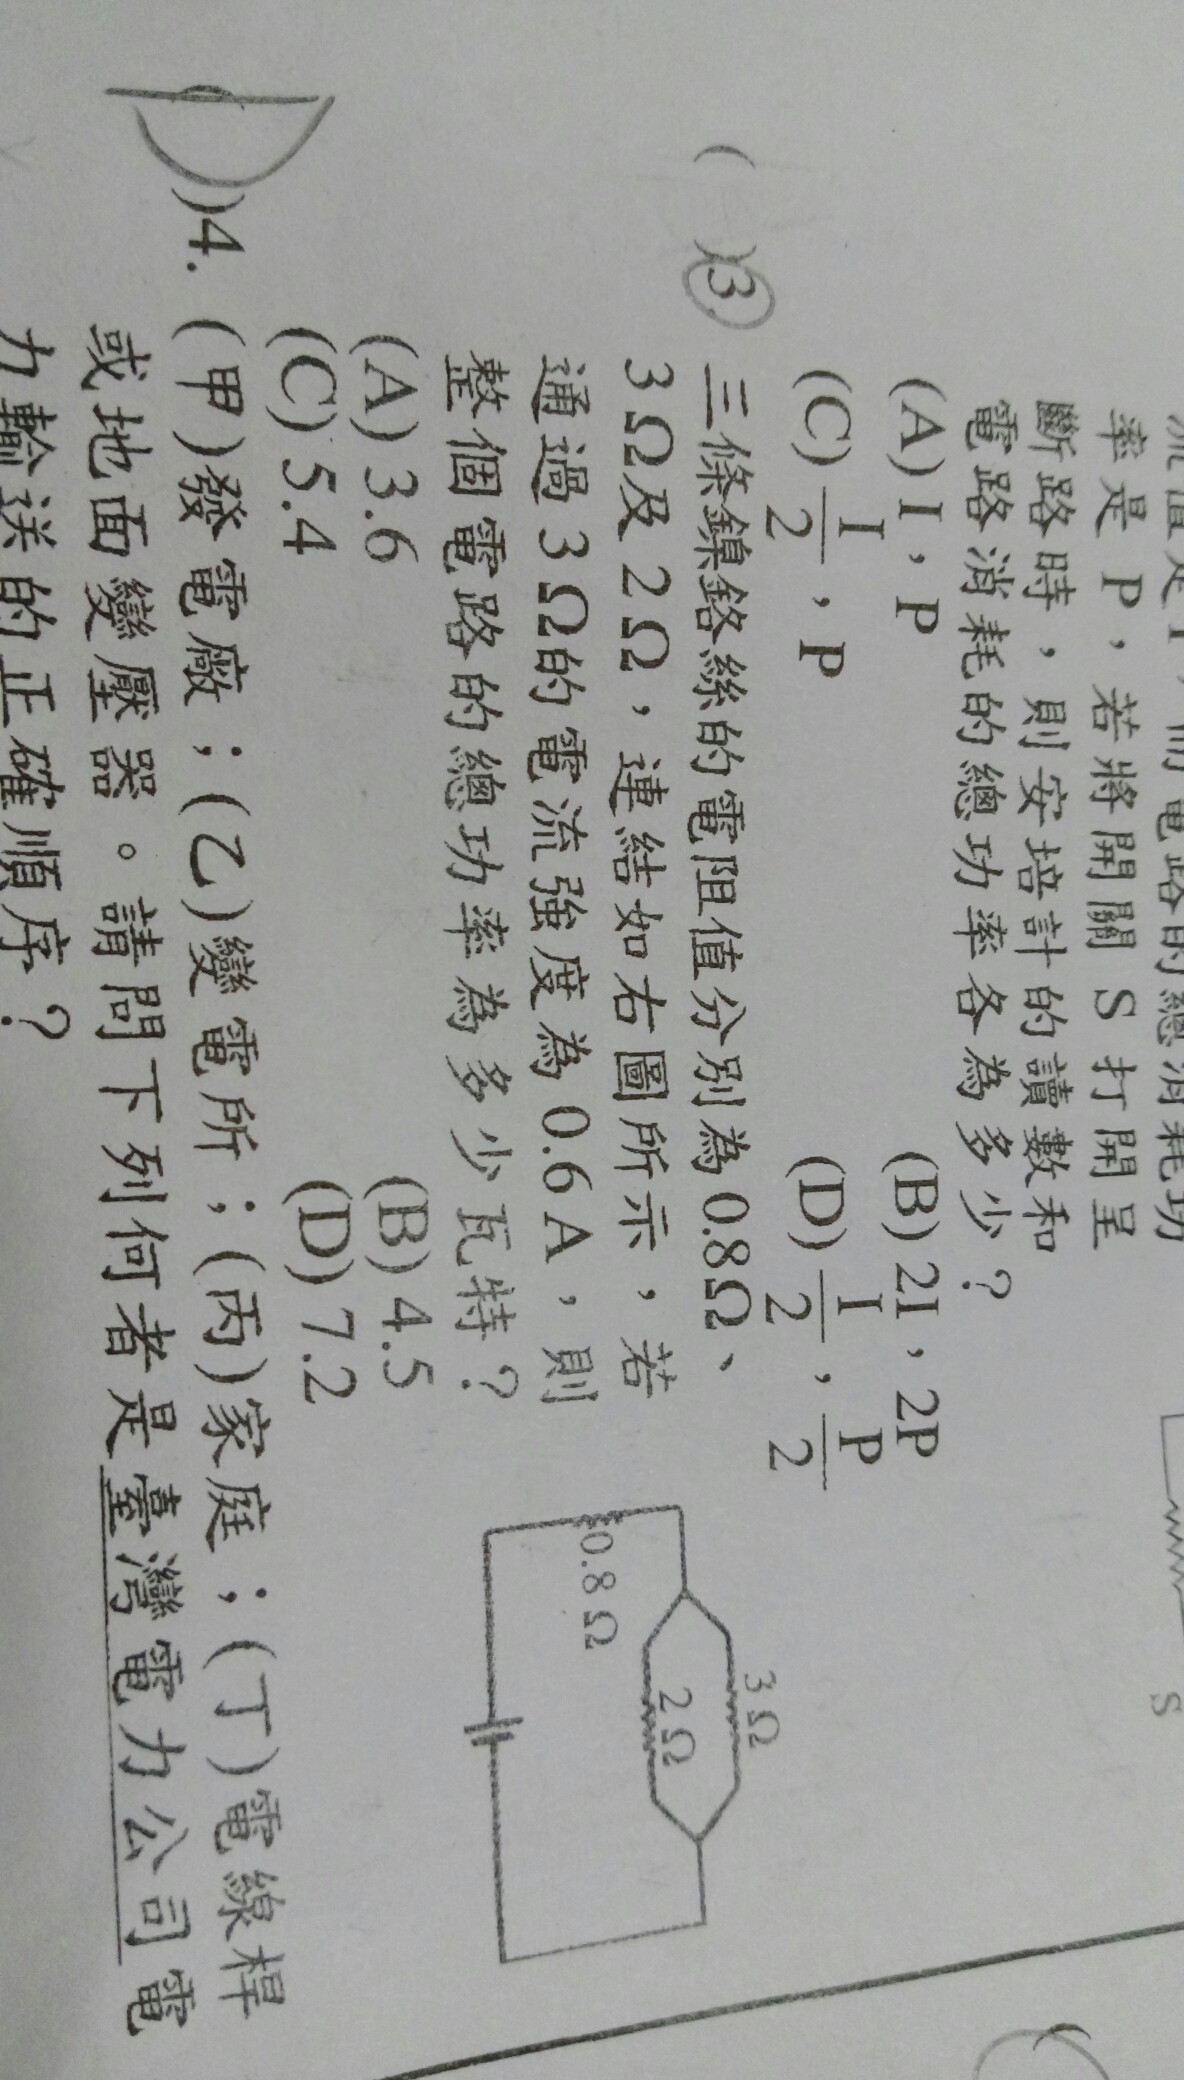 率是 P，若將開關 S 打開呈
斷路時，則安培計的讀數和
電路消耗的總功率各為多少？
(A) I，P (B) 2I，2P
(C) I/2，P (D) I/2，P/2
( )3 三條鎳鉻絲的電阻值分別為 0.8Ω、
3Ω及 2Ω，連結如右圖所示，若
通過 3Ω的電流強度為 0.6 A，則
整個電路的總功率為多少瓦特？
(A) 3.6 (B) 4.5
(C) 5.4 (D) 7.2
3Ω
2Ω
0.8Ω
S
)4. (甲)發電廠；(乙)變電所；(丙)家庭；(丁)電線桿
或地面變壓器。請問下列何者是臺灣電力公司電
力輸送的正確順序？